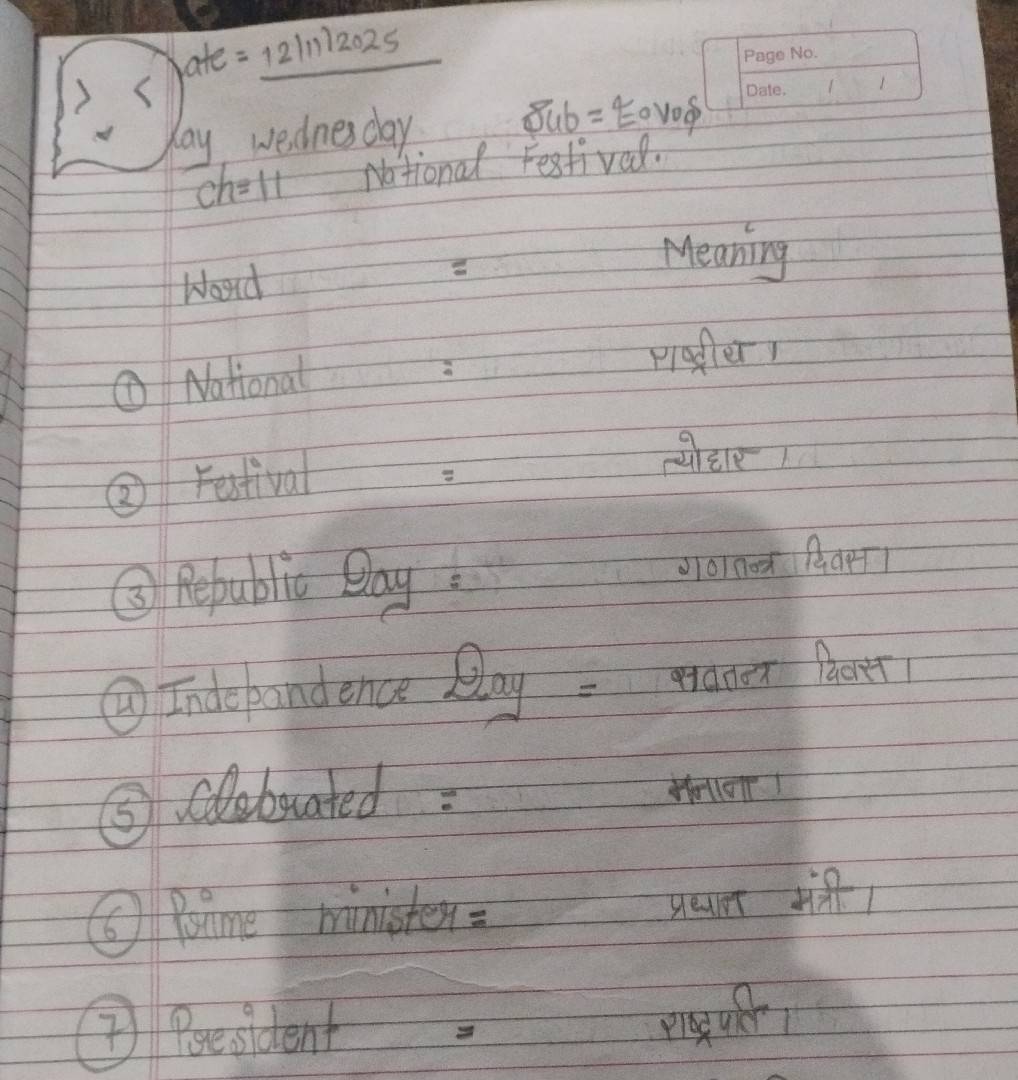 Date = 12/11/2025
Page No.
Date. / /
Day Wednesday
Ch=11 National Festival.
Word = Meaning
① National = राष्ट्रीय।
② Festival = त्योहार।
③ Republic Day = गणतन्त्र दिवस।
④ Indepandence Day = सवतन्त्र दिवस।
⑤ Celebrated = मनाना।
⑥ Prime minister = प्रधान मंत्री।
⑦ President = राष्ट्रपति।